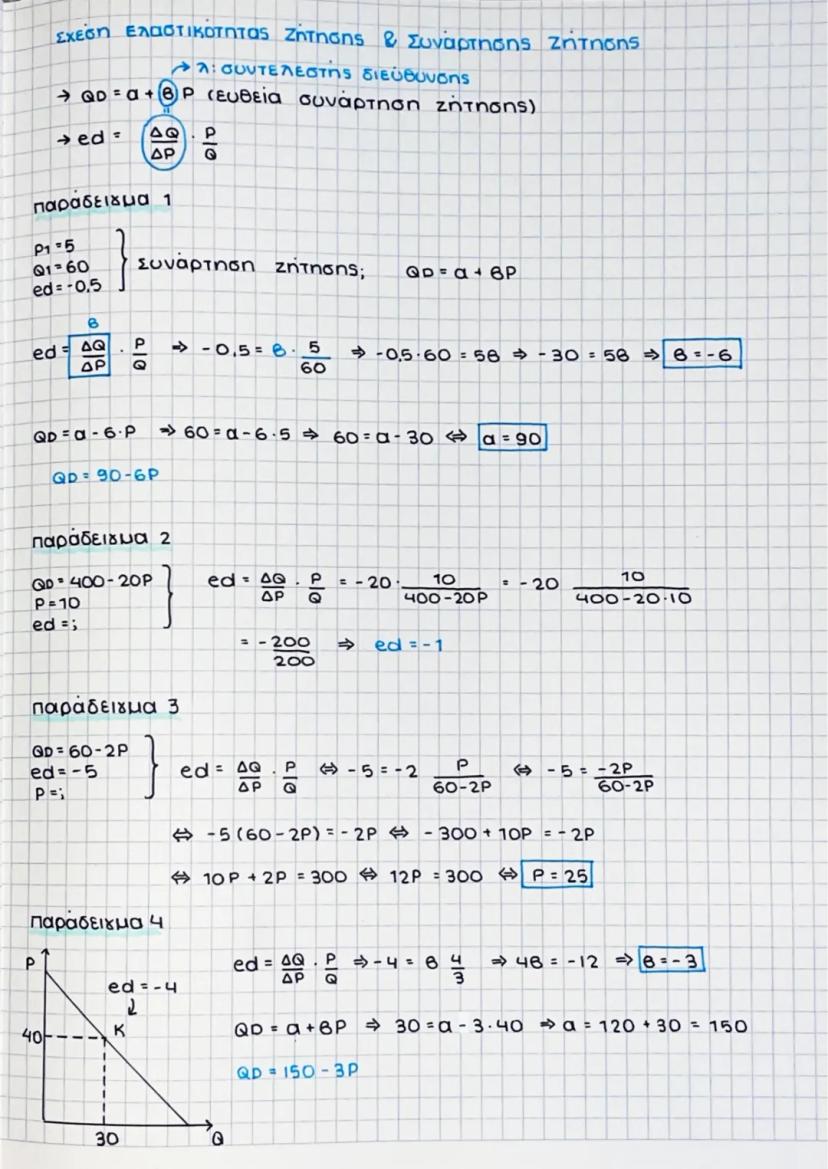 Σχέση Ελαστικότητας Ζήτησης & Συνάρτησης Ζήτησης
→ λ: συντελεστής διεύθυνσης
→ QD = α + β P (ευθεία συνάρτηση ζήτησης)
→ ed = ΔQ/ΔP · P/Q
παράδειγμα 1
P1 = 5
Q1 = 60
ed = -0,5
Συνάρτηση ζήτησης; QD = α + βP
β
ed = ΔQ/ΔP · P/Q ⇒ -0,5 = β · 5/60 ⇒ -0,5·60 = 5β ⇒ -30 = 5β ⇒ β = -6
QD = α - 6·P ⇒ 60 = α - 6·5 ⇒ 60 = α - 30 ⇔ α = 90
QD = 90-6P
παράδειγμα 2
QD = 400-20P
P = 10
ed = ;
ed = ΔQ/ΔP · P/Q = -20· 10/400-20P = -20 10/400-20·10
= -200/200 ⇒ ed = -1
παράδειγμα 3
QD = 60-2P
ed = -5
P = ;
ed = ΔQ/ΔP · P/Q ⇔ -5 = -2 P/60-2P ⇔ -5 = -2P/60-2P
⇔ -5(60-2P) = -2P ⇔ -300 + 10P = -2P
⇔ 10P + 2P = 300 ⇔ 12P = 300 ⇔ P = 25
παράδειγμα 4
P
ed = -4
40
K
30
Q
ed = ΔQ/ΔP · P/Q ⇒ -4 = β 4/3 ⇒ 4β = -12 ⇒ β = -3
QD = α + βP ⇒ 30 = α - 3·40 ⇒ α = 120 + 30 = 150
QD = 150 - 3P